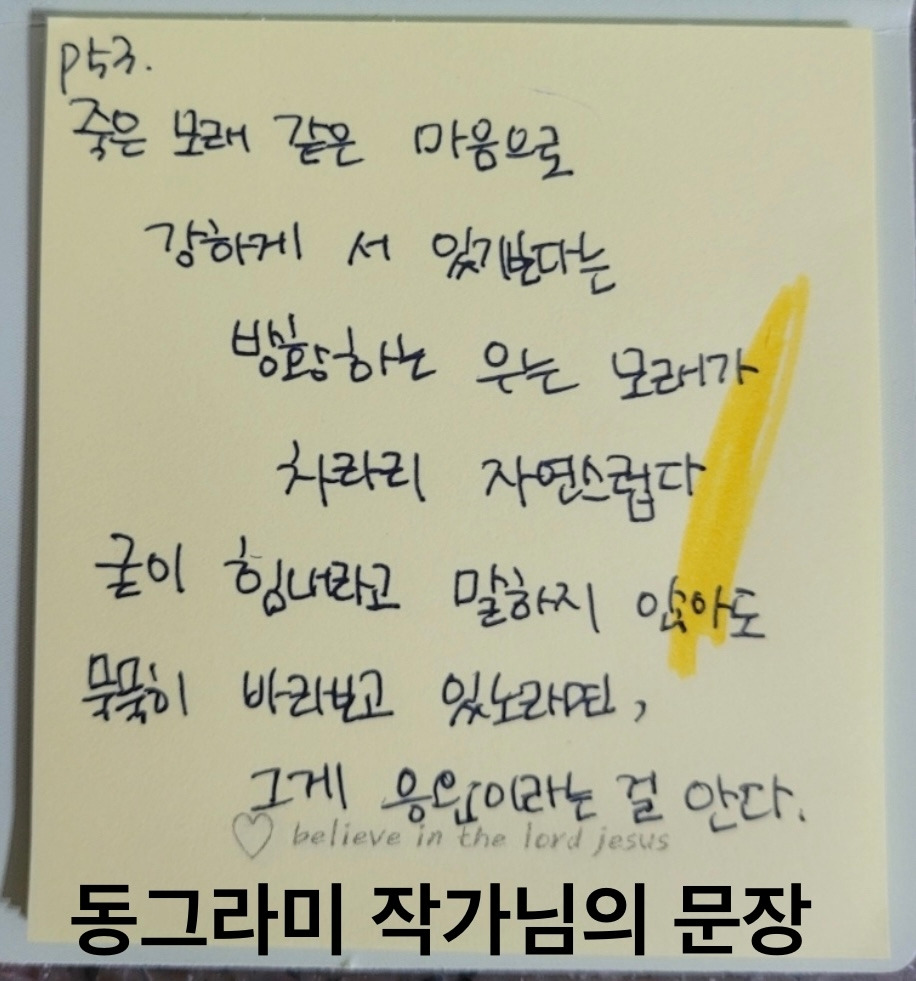 P53.
죽은 모래 같은 마음으로
강하게 서 있기보다는
방황하는 우는 모래가
차라리 자연스럽다
굳이 힘내라고 말하지 않아도
묵묵히 바라보고 있노라면,
그게 응원이라는 걸 안다.
♡ believe in the lord jesus
동그라미 작가님의 문장